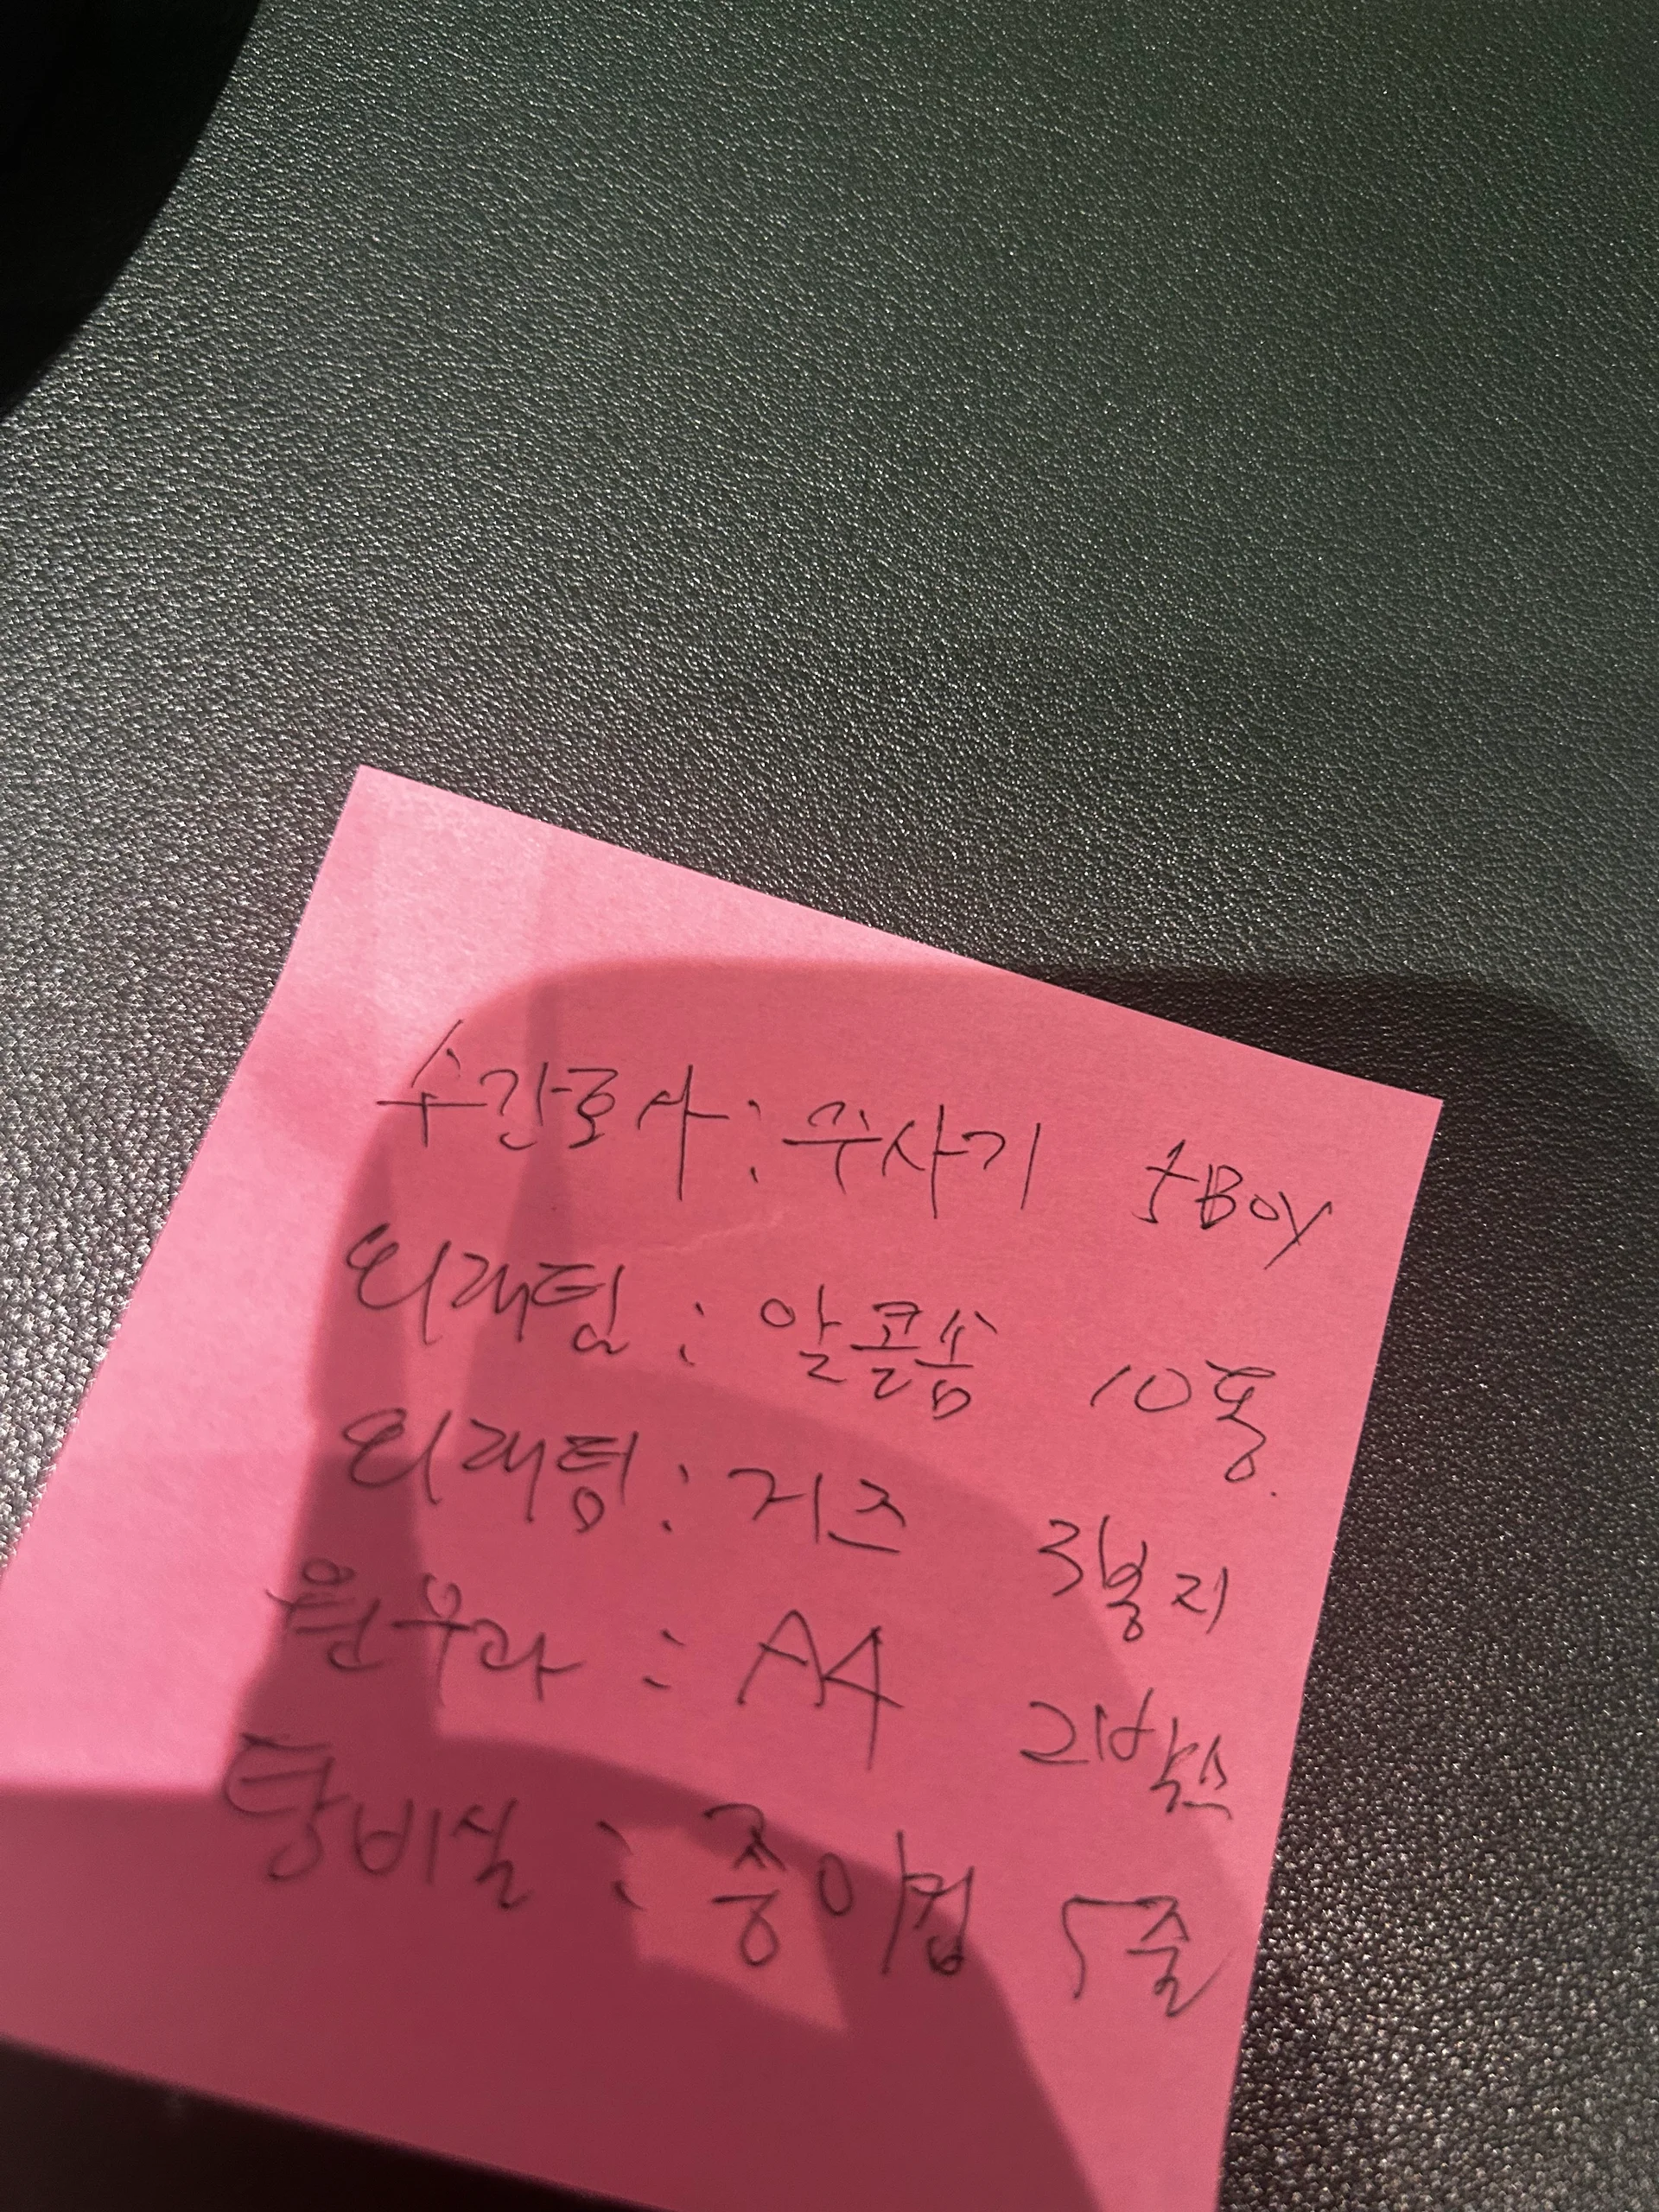 수간호사: 주사기 5Box
외래팀: 알콜솜 10통.
외래팀: 거즈 3봉지
원무과: A4 2박스
탕비실: 종이컵 5줄